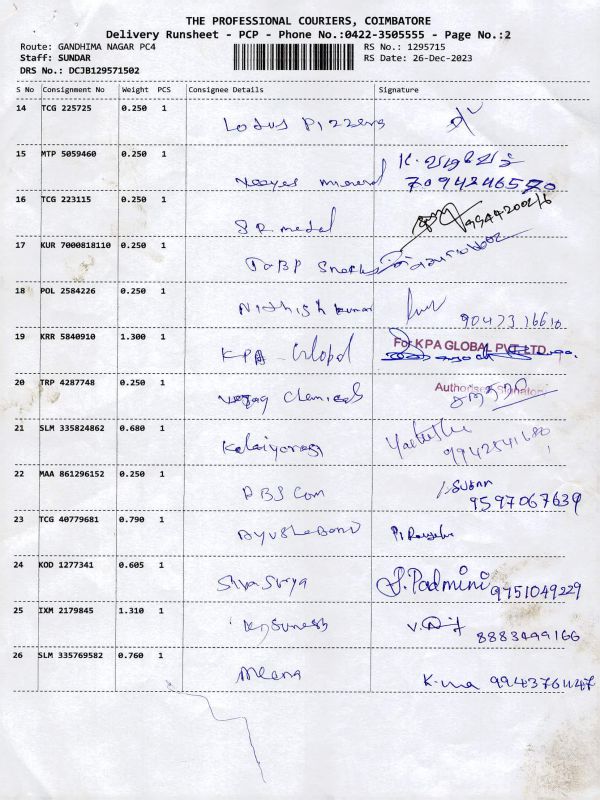 THE PROFESSIONAL COURIERS, COIMBATORE
Delivery Runsheet - PCP - Phone No.:0422-3505555 - Page No.:2
Route: GANDHIMA NAGAR PC4 RS No.: 1295715
Staff: SUNDAR RS Date: 26-Dec-2023
DRS No.: DCJB129571502
S No Consignment No Weight PCS Consignee Details Signature
14 TCG 225725 0.250 1
Lotus Pizzeria
15 MTP 5059460 0.250 1
mineral 7094246570
16 TCG 223115 0.250 1
SR medal
17 KUR 7000818110 0.250 1
Snacks
18 POL 2584226 0.250 1
Nithish kumar
19 KRR 5840910 1.300 1
KPA - Glopal For KPA GLOBAL PVT. LTD.,
20 TRP 4287748 0.250 1 Authorised Signatory
Chemicals
21 SLM 335824862 0.680 1
9942541680
22 MAA 861296152 0.250 1
Com Susan
9597067639
23 TCG 40779681 0.790 1
24 KOD 1277341 0.605 1
Siva Surya S. Padmini 9751049229
25 IXM 2179845 1.310 1
Suresh 8883499166
26 SLM 335769582 0.760 1
Meena